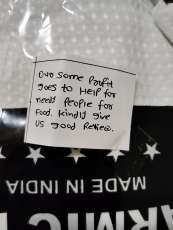 Our Some Profit
goes to Help for
needs People for
Food. kindly give
us good Review.
MADE IN INDIA
ARMIC